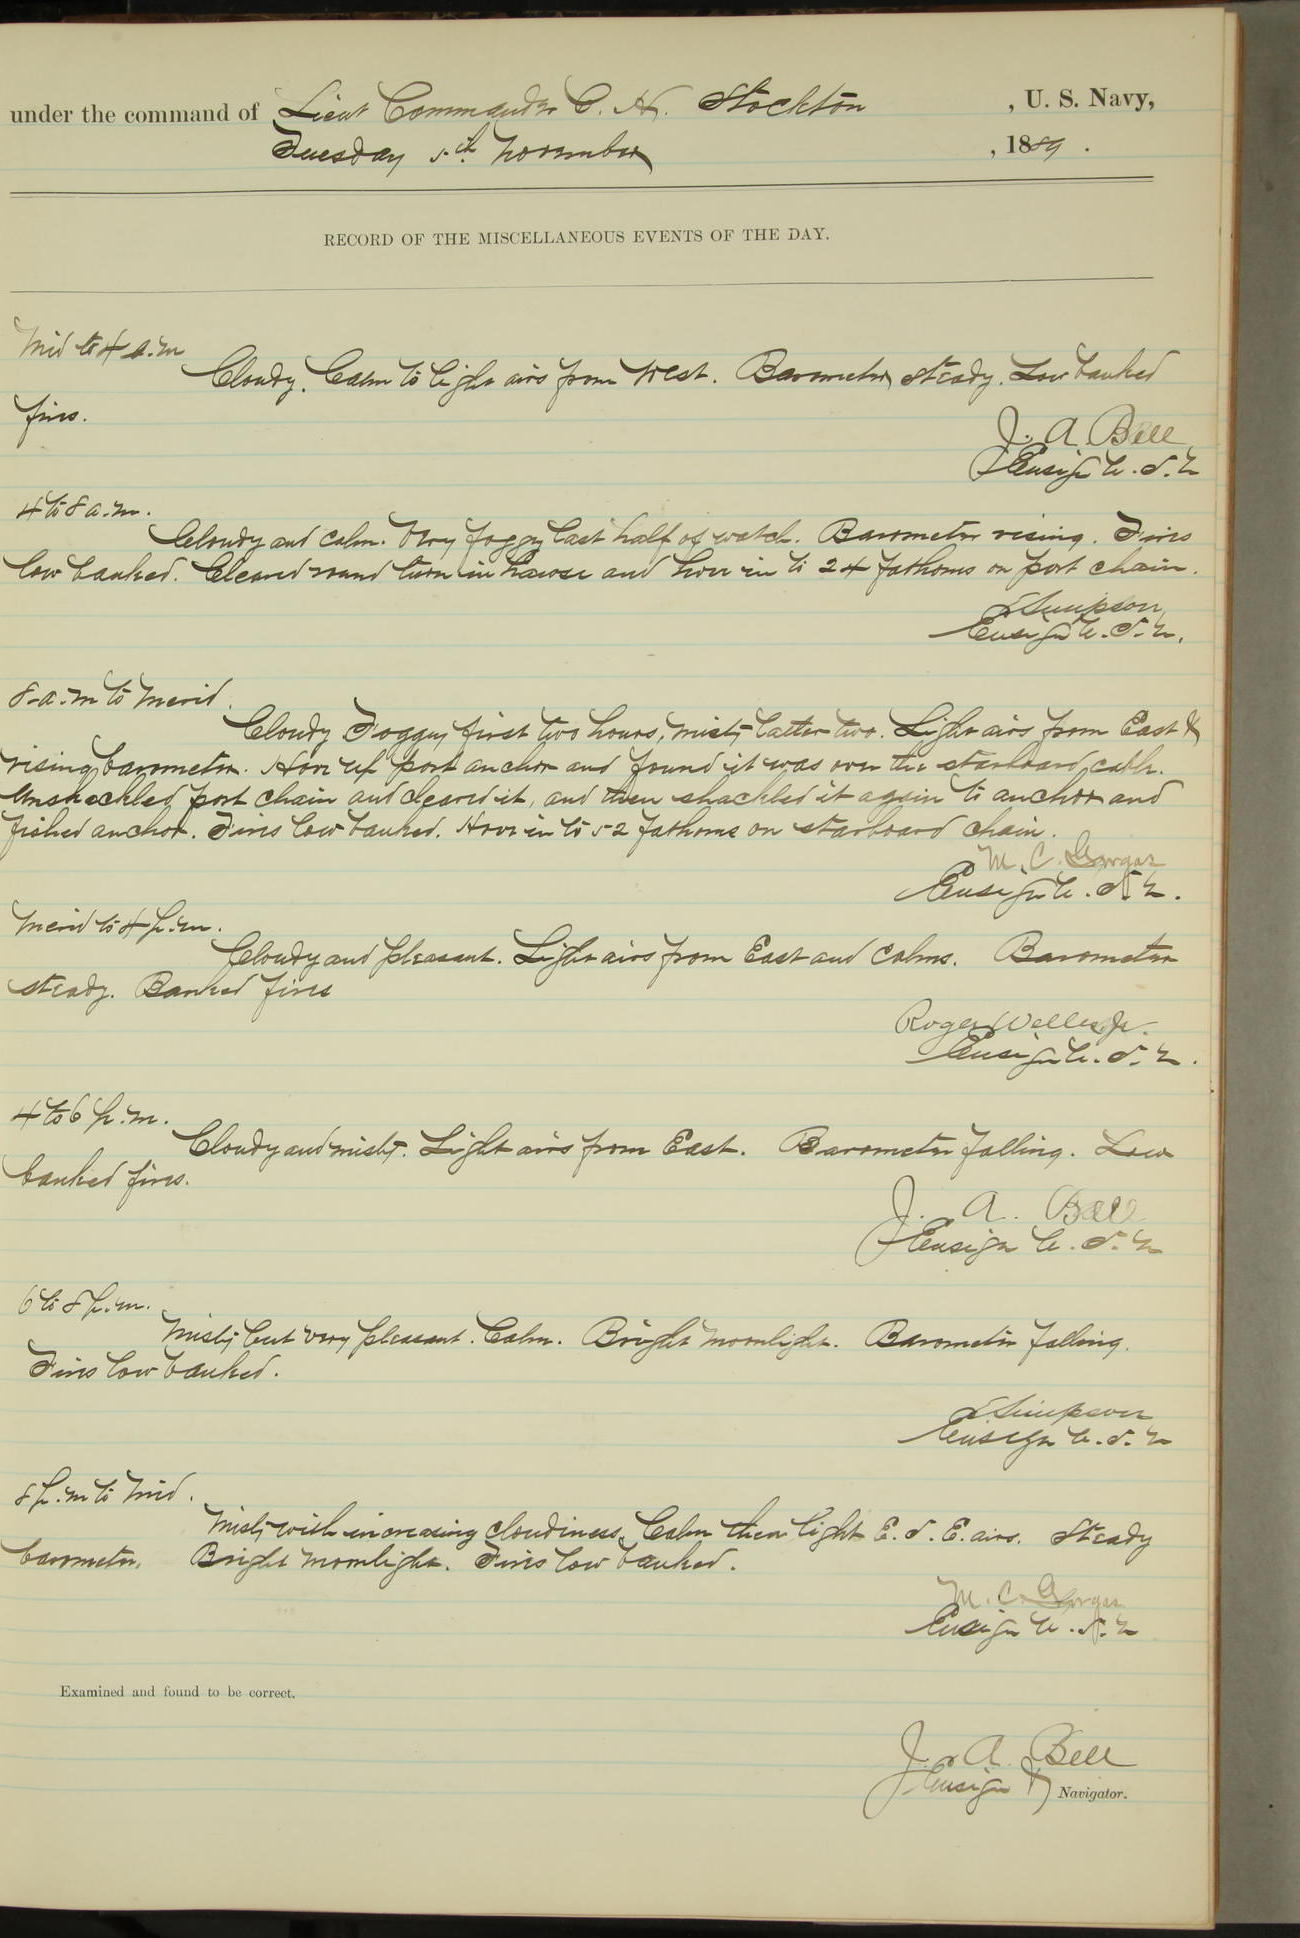 under the command of Lieut Commander C. H. Stockton, U. S. Navy,
Tuesday 5th November, 1889.
RECORD OF THE MISCELLANEOUS EVENTS OF THE DAY.
Mid to 4 a.m
Cloudy. Calm to light airs from West. Barometer steady. Low banked
fires.
J. A. Bell
Ensign U.S.N
4 to 8 a.m.
Cloudy and calm. Very foggy last half of watch. Barometer rising. Fires
low banked. Cleared round turn in hawse and hove in to 24 fathoms on port chain.
E Simpson
Ensign U.S.N.
8 a.m to Merid.
Cloudy Foggy first two hours, misty latter two. Light airs from East &
rising barometer. Hove up port anchor and found it was over the starboard cable.
Unshackled port chain and cleared it, and then shackled it again to anchor and
fished anchor. Fires low banked. Hove in to 52 fathoms on starboard chain.
M. C. Gorgas
Ensign U.S.N.
Merid to 4 p.m.
Cloudy and pleasant. Light airs from East and calms. Barometer
steady. Banked fires
Roger Welles Jr.
Ensign U.S.N.
4 to 6 p.m.
Cloudy and misty. Light airs from East. Barometer falling. Low
banked fires.
J. A. Bell
Ensign U.S.N
6 to 8 p.m.
Misty but very pleasant. Calm. Bright moonlight. Barometer falling.
Fires low banked.
E Simpson
Ensign U.S.N
8 p.m to Mid.
Misty with increasing cloudiness. Calm then light E.S.E. airs. Steady
barometer. Bright moonlight. Fires low banked.
M. C. Gorgas
Ensign U.S.N
Examined and found to be correct.
J. A. Bell
Ensign & Navigator.